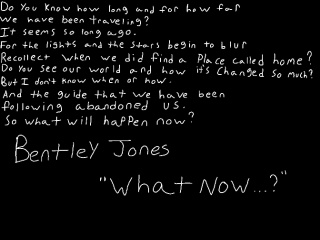 Do you know how long and for how far
we have been traveling?
It seems so long ago.
For the lights and the stars begin to blur
Recollect when we did find a place called home?
Do you see our world and how it's changed so much?
But I don't know when or how.
And the guide that we have been
following abandoned us.
So what will happen now?
Bentley Jones
"What Now...?"